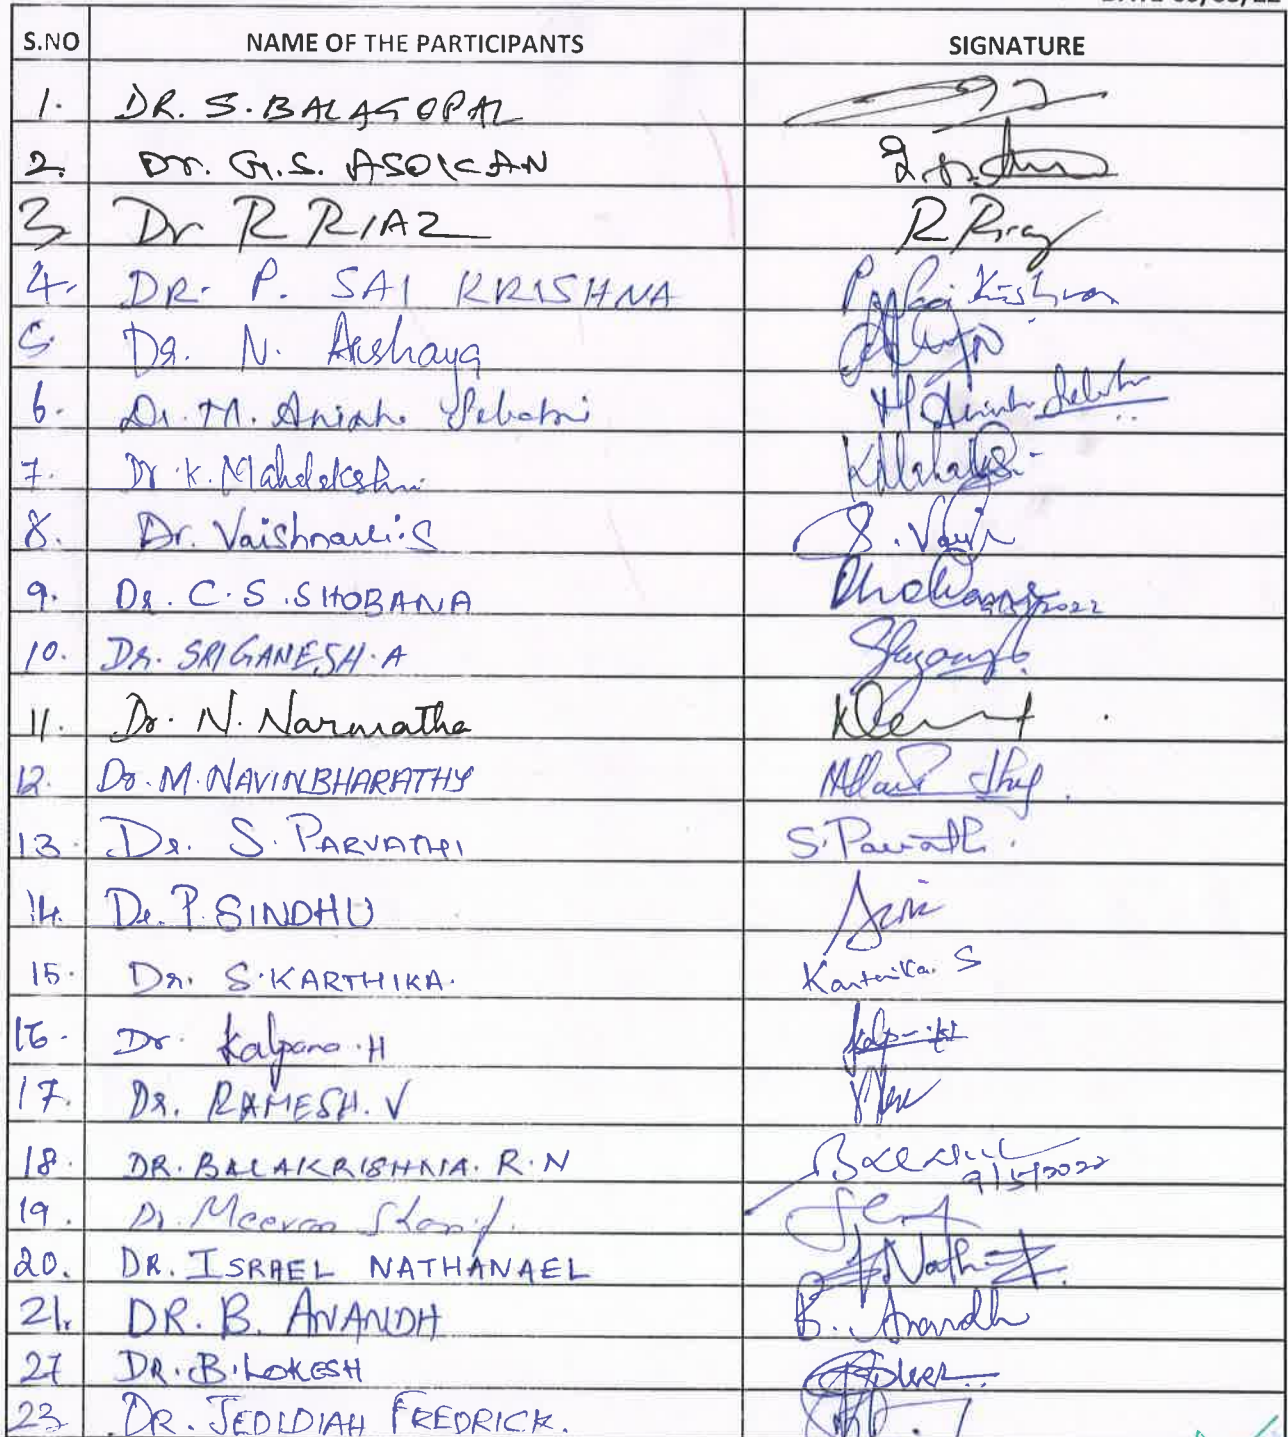 S.NO NAME OF THE PARTICIPANTS SIGNATURE
1. DR. S. BALAGOPAL
2. Dr. G.S. ASOKAN
3 Dr R RIAZ R Riaz
4. DR. P. SAI KRISHNA P. Sai Krishna
5. Dr. N. Akshaya
6. Dr. M. Anisha Sebatni
7. Dr. K. Mahalakshmi K Mahalaks
8. Dr. Vaishnavi.S S. Vaish
9. Dr. C.S. SHOBANA Shobana 9/5/2022
10. Dr. SRIGANESH.A
11. Dr. N. Narmatha
12. Dr. M. NAVINBHARATHY
13. Dr. S. PARVATHI S. Parvathi.
14. Dr. P. SINDHU
15. Dr. S. KARTHIKA. Karthika. S
16. Dr. Kalpana.H
17. Dr. RAMESH.V
18. DR. BALAKRISHNA. R.N 9/5/2022
19. Dr. Meeran Sharif.
20. DR. ISRAEL NATHANAEL
21. DR. B. ANANDH B. Anandh
27 DR. B. LOKESH
23 DR. JEDIDIAH FREDRICK.